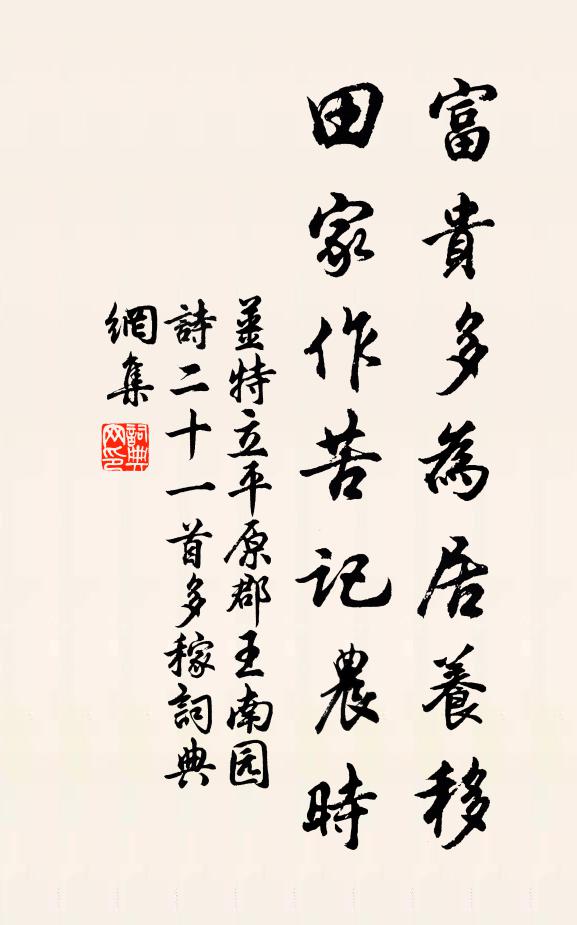 富貴多為居養移
田家作苦記農時
薑特立平原郡王南园
詩二十一首多稼詞典
網集
詞典
网印